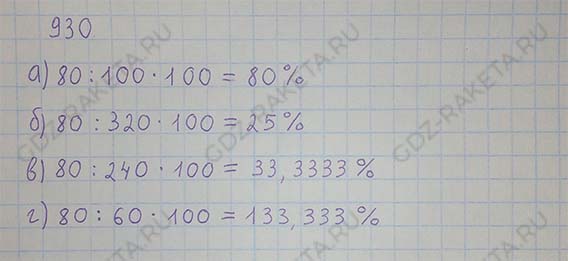 930
а) 80 : 100 · 100 = 80 %
б) 80 : 320 · 100 = 25 %
в) 80 : 240 · 100 = 33,3333 %
г) 80 : 60 · 100 = 133,333 %
GDZ-RAKETA.RU
GDZ-RAKETA.RU
GDZ-RAKETA.RU
GDZ-RAKETA.RU